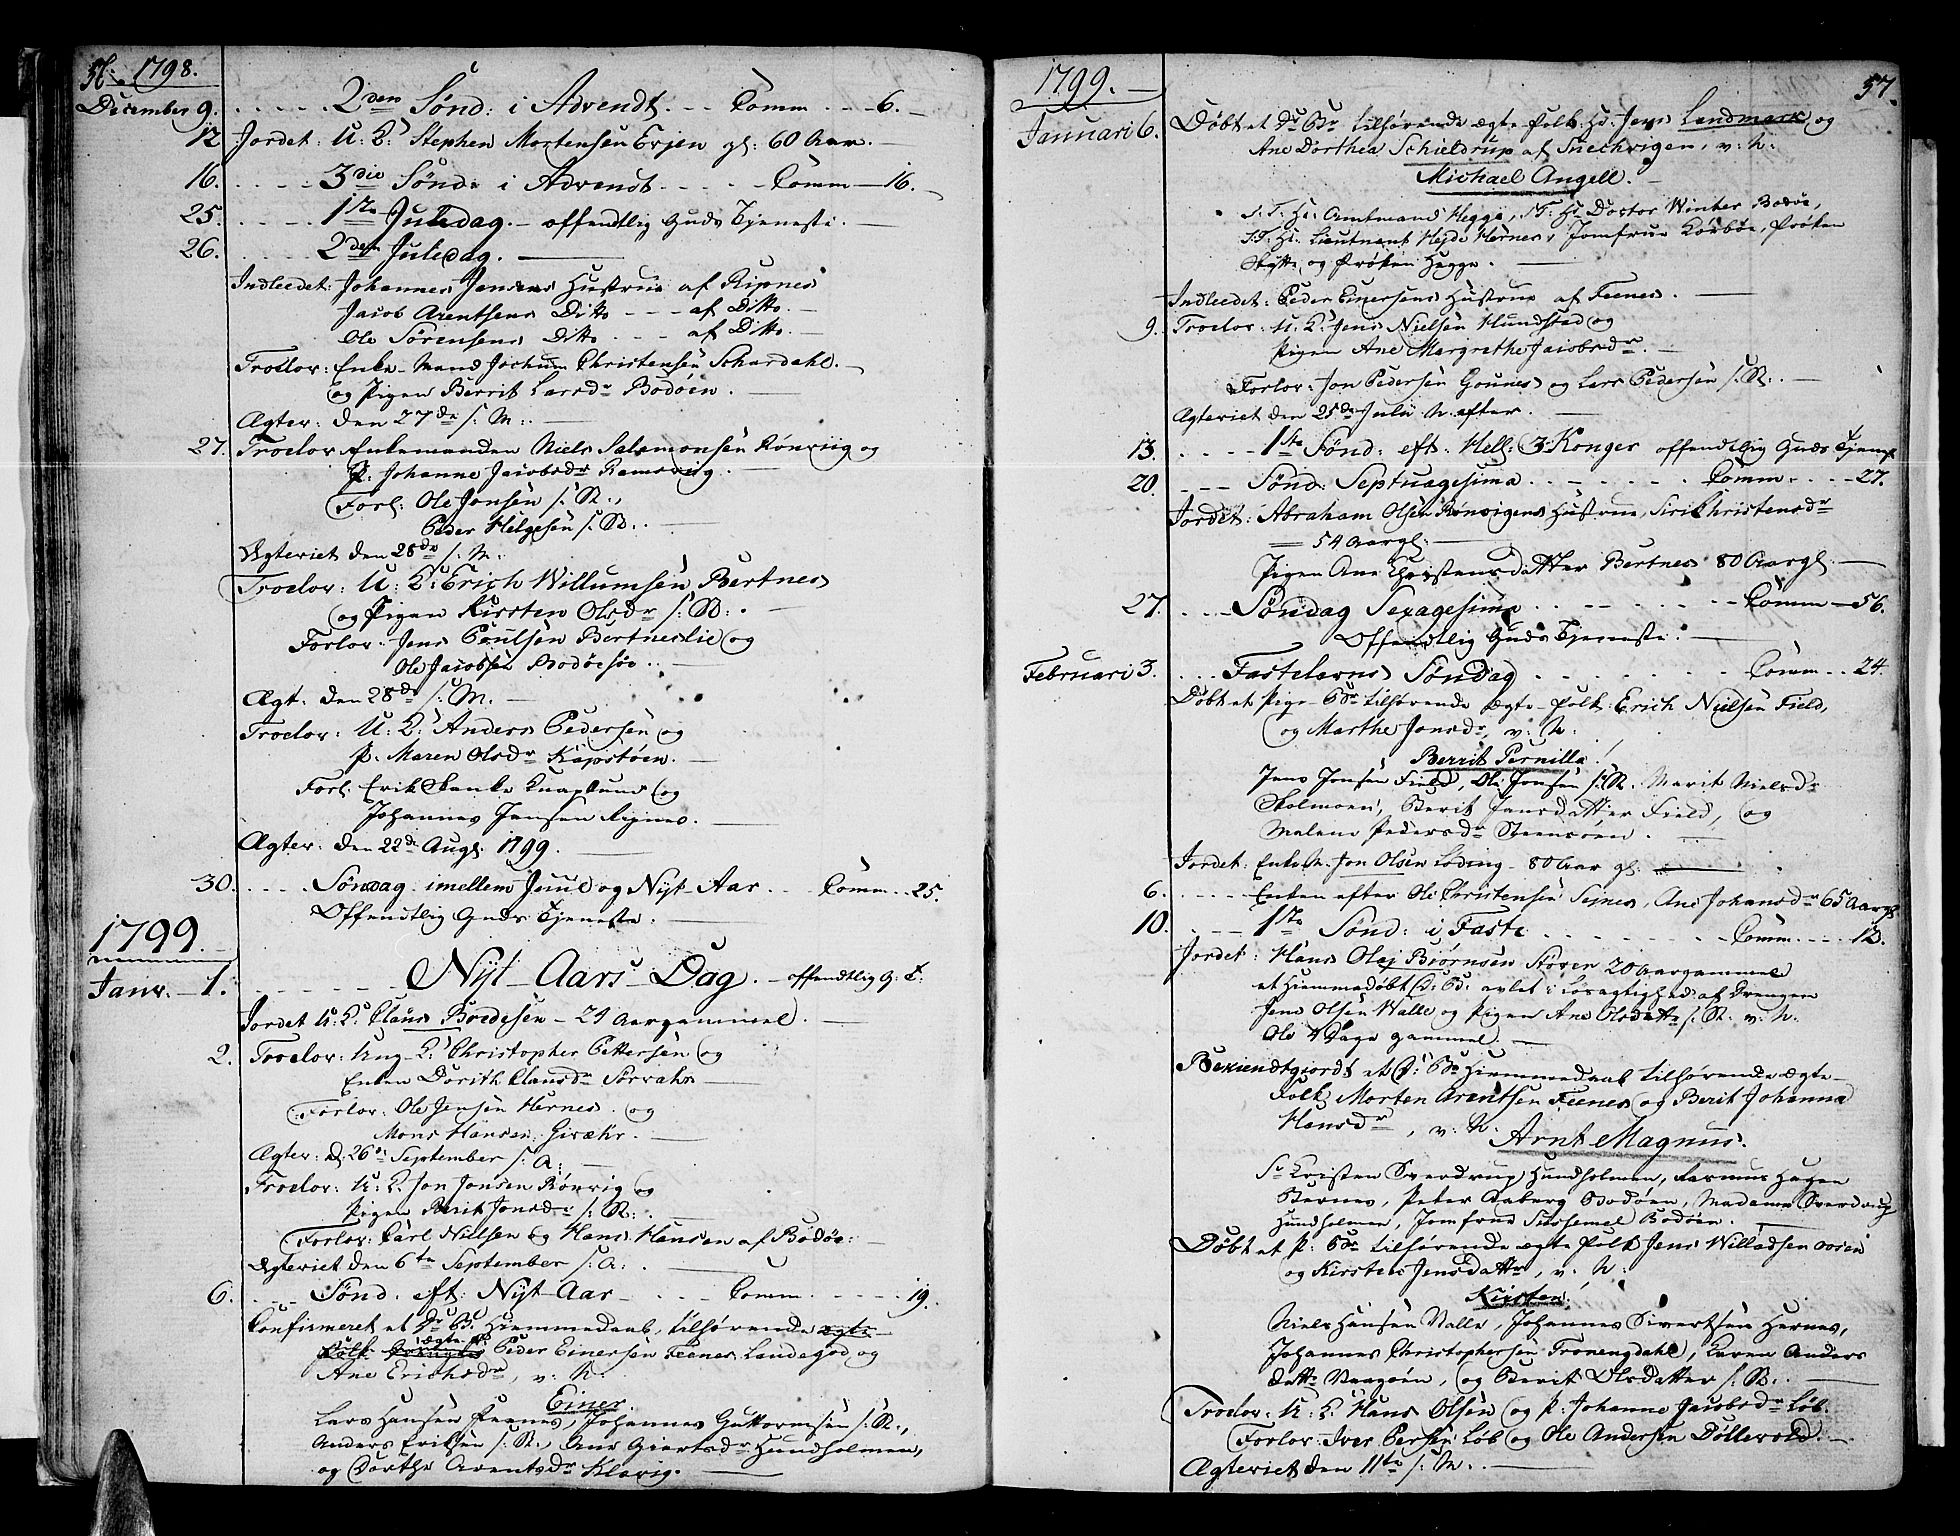 56. 1798.
December 9. 2den Sønd: i Advendt. Comm 6.
12 Jordet: U: K: Stephen Mortensen Erjen gl: 60 Aar.
16. 3die Sønd: i Advendt. Comm 16.
25. 1ste Juledag. offendtlig Guds Tjeneste.
26. 2den Juledag.
Indleedet: Johannes Jensens Hustrue af Ripnes
Jacob Arentsens Ditto af Ditto.
Ole Sørensens Ditto af Ditto.
Troelov: Enke-Mand Jochum Christensen Schardahl.
og Pigen Berrit Larsdr Bodøen.
Ægter: den 27de s: M:
27. Troelov Enkemanden Niels Salamonsen Rønviig og
P: Johanne Jacobsdr Ramsviig.
Forl: Ole Jonsen s: St.,
Peder Helgesen s: St:.
Ægteviet den 28de s: M:
Troelov: U: K: Erich Willumsen Bertnes
og Pigen Kirsten Olsdr s: St:.
Forlov: Jens Poulsen Bertneslie og
Ole Jacobsen Bodøesøe.
Ægt: den 28de s: M.
Troelov: U: K: Anders Pedersen og
P: Maren Olsdr Kapstøen.
Forl: Erik Skanke Knaplund og
Johannes Jansen Rignes.
Ægter: den 22de Augl: 1799.
30. Søndag imellem Juul og Nyt-Aar Comm 25.
Offendtlig Guds Tjeneste.
1799.
Janv. 1. Nyt-Aars-Dag. offendtlig G: T:
Jordet U: K: Claus Bredesen 21 Aargammel.
2. Troelov: Ung-K: Christopher Pettersen og
Enken Dorith Clausdr Sørvahr
Forlov: Ole Jensen Hernes. og
Mons Hansen Givæhr.
Ægter: d: 26de September s: A:
Troelov: U: K: Jon Jonsen Rønvig og
Pigen Berit Jonsdr s: St:
Forlov: Carl Nielsen og Hans Hansen af Bodøe:
Ægteviet den 6te September s: A:
6. Sønd. eft: Nyt-Aar Comm. 19.
Confirmeret et Dr: B: Hiemmedaab, tilhørende ægte
Folk ægte F: Peder Einersen Feenes Landegod og
Ane Erichsdr, v: N:
Einer.
Lars Hansen Feenes, Johannes Guttormsen s: St.,
Anders Eriksen s: St., Ane Giertsdr Hundholmen,
og Dorthe Arentsdr Klævig.
1799. 57.
Januari 6. Døbt et Dr: Br tilhørende ægte Folk: Hr: Jens Landmark og
Ane Dorthea Schieldrup af Snechvigen, v: N:
Michael Angell.
S: T: Hr: Amtmand Hegge, S: T: Hr Doctor Winter Bodøe,
S: T: Hr: Lieutnant Hejde Hernes, Jomfrue Koebøe, Frøken
Skytte og Frøken Hegge.
Indleedet: Peder Einersens Hustrue af Feenes.
9. Troelov: U: K: Jens Nielsen Hundstad og
Pigen Ane Margrethe Jacobsdr.
Forlov: Jon Pedersen Gounes og Lars Pedersen s: St:.
Ægteviet den 25de Julii N. efter.
13. 1ste Sønd: eft: Hell: 3 Konger offendtlig Guds Tjenest
20. Sønd: Septuagesima Comm 27.
Jordet: Abraham Olsen Rønvigens Hustrue, Siri Christensdr
54 Aar gl:
Pigen Ane Christensdatter Bertnes 80 Aar gl:
27. Søndag Sexagesima Comm 56.
Offendtlig Guds Tjeneste.
Februari 3. Fastelavns Søndag Comm 24.
Døbt et Pige-Br tilhørende ægte-Folk: Erich Nielsen Field,
og Marthe Jonsdr, v: N:
Berrit Pernilla.
Jens Jonsen Field, Ole Jonsen s: St. Marit Nielsdr
Skolmoen, Berit Jansdatter Field, og
Malene Pedersdr Steensoen.
Jordet: Enkem. Jon Olsen Løding 80 Aar gl:
6. Enken efter Ole Christensen Sejnes, Ane Johansdr 65 Aar gl
10. 1ste Sønd: i Faste Comm. 12.
Jordet: Hans Olaj Biørnsen Støver 20 Aargammel
et Hiemmedøbt D: B: avlet i Løsagtighed af Drengen
Jens Olsen Walle og Pigen Ane Olsdattr s: St. v: N.
Ole 4 Dage gammel.
Bekiendtgjordt et D: Br Hiemmedaab tilhørende ægte
Folk Morten Arentsen Feenes og Berit Johanna
Hansdr, v: N.
Arnt Magnus.
Sr Kristen Sverdrup Hundholmen, Rasmus Hagen
Bernes, Peter Aaberg Bodøen, Madame Sverdrup
Hundholmen, Jomfrue Bodøen.
Døbt et P: Br tilhørende ægte Folk Jens Willadsen Osen
og Kirsten Jensdattr, v: N.
Kirsten.
Niels Hansen Walle, Johannes Sivertsen Hernes,
Johannes Christophersen Tronengdahl, Karen Anders
Dattr Waagøen, og Berit Olsdatter s: St:.
Troelov: U: K: Hans Olsen og P: Johanne Jacobsdr Løb.
Forlov: Iver Persen Løb og Ole Andersen Døllevold.
Ægteviet den 11te s: M.